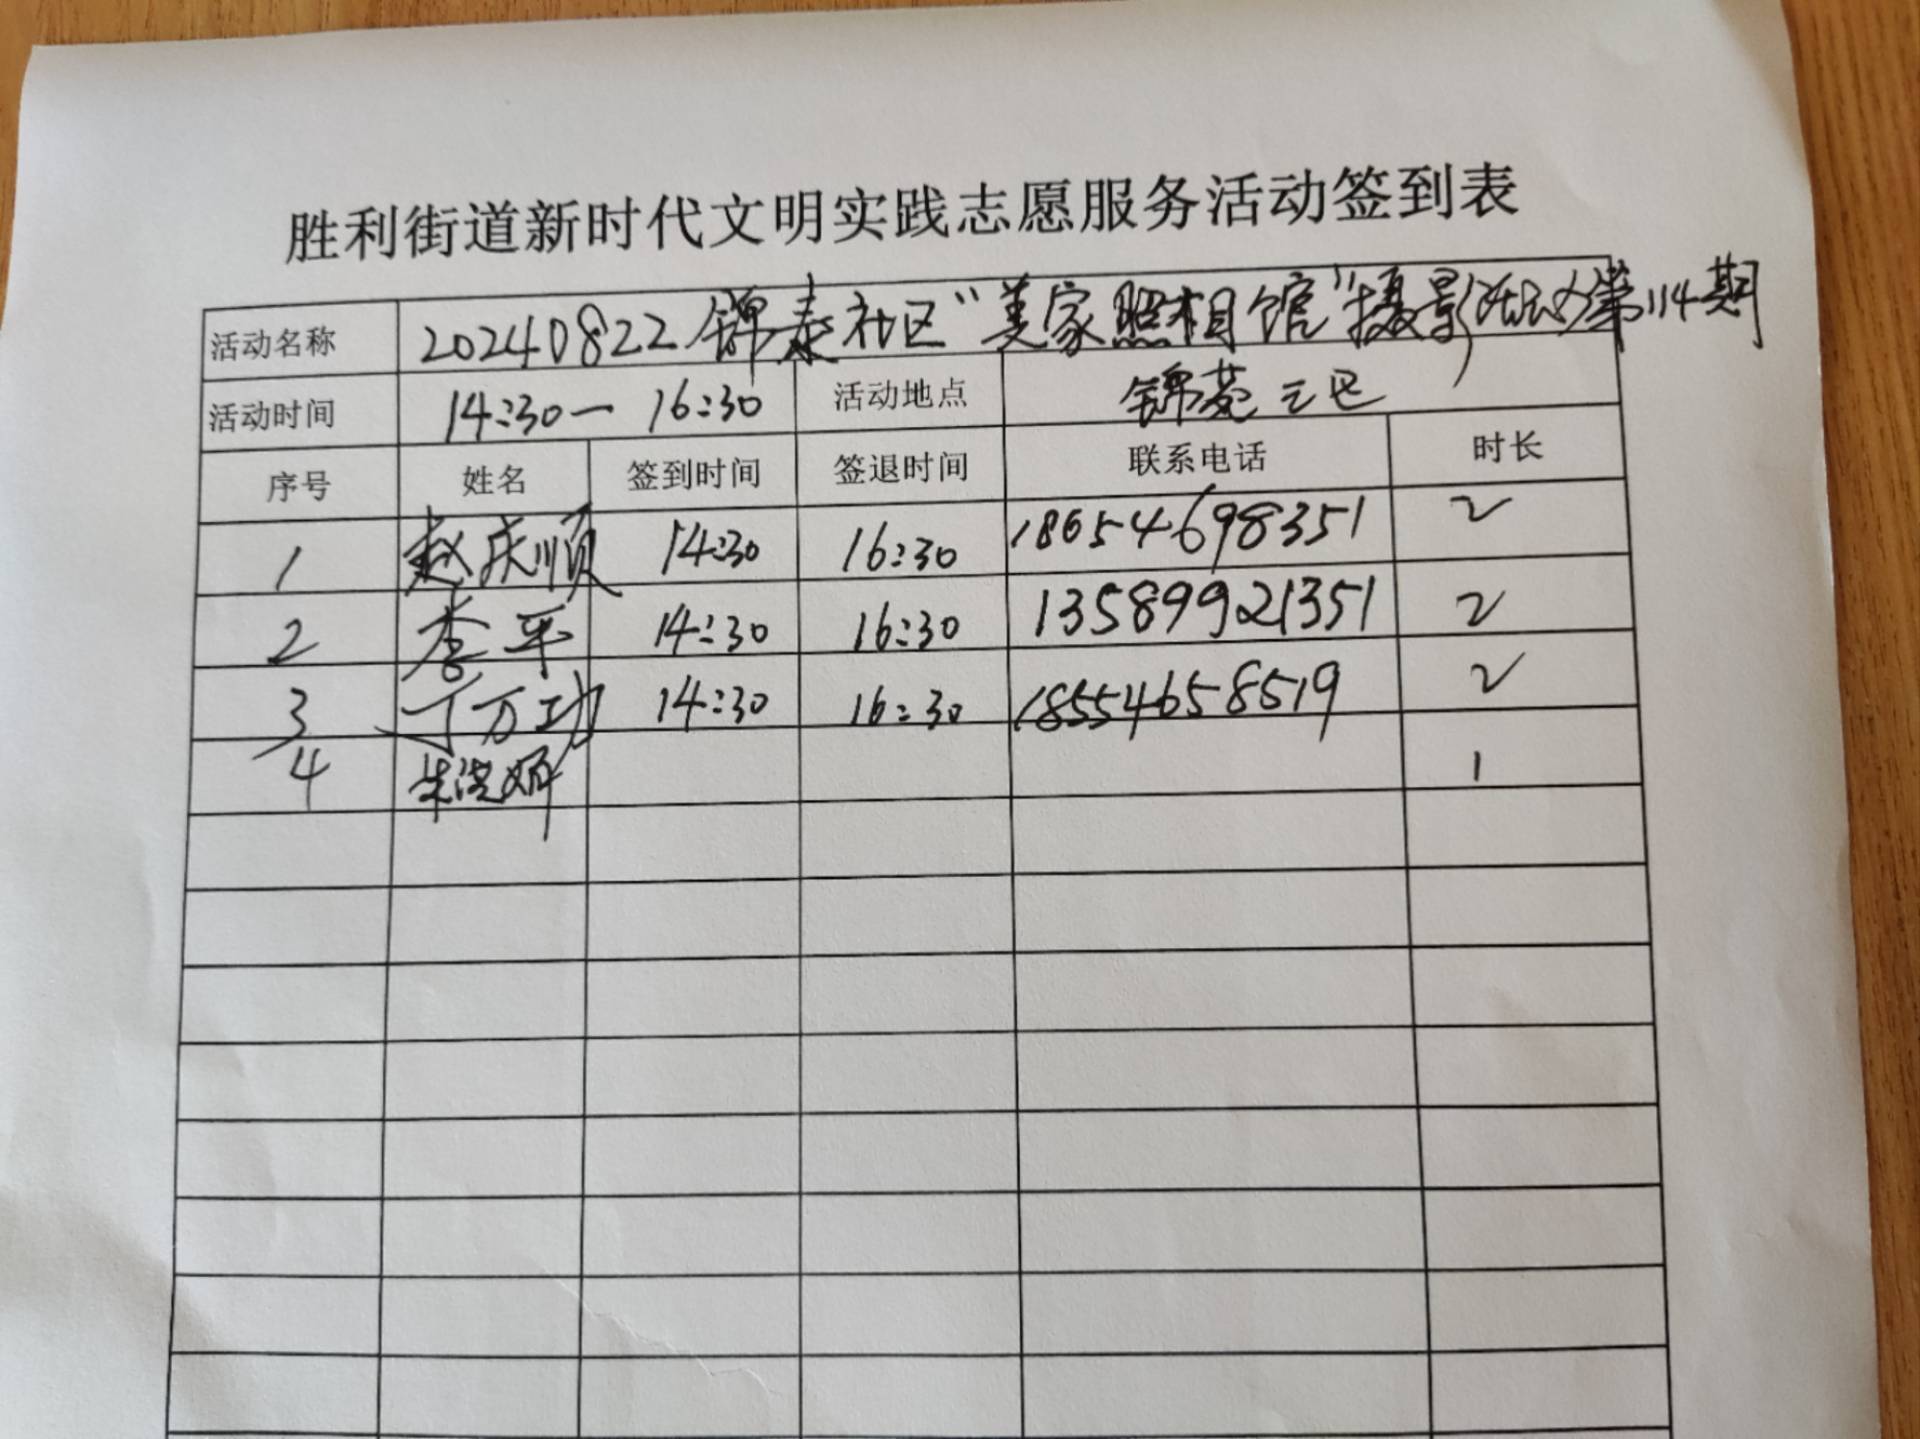 胜利街道新时代文明实践志愿服务活动签到表
活动名称 20240822锦泰社区“美家照相馆”摄影活动第114期
活动时间 14:30一16:30 活动地点 锦苑三区
序号 姓名 签到时间 签退时间 联系电话 时长
1 赵庆顺 14:30 16:30 18654698351 2
2 李平 14:30 16:30 13589921351 2
3 丁万功 14:30 16:30 18554658519 2
4 朱洪妍 1